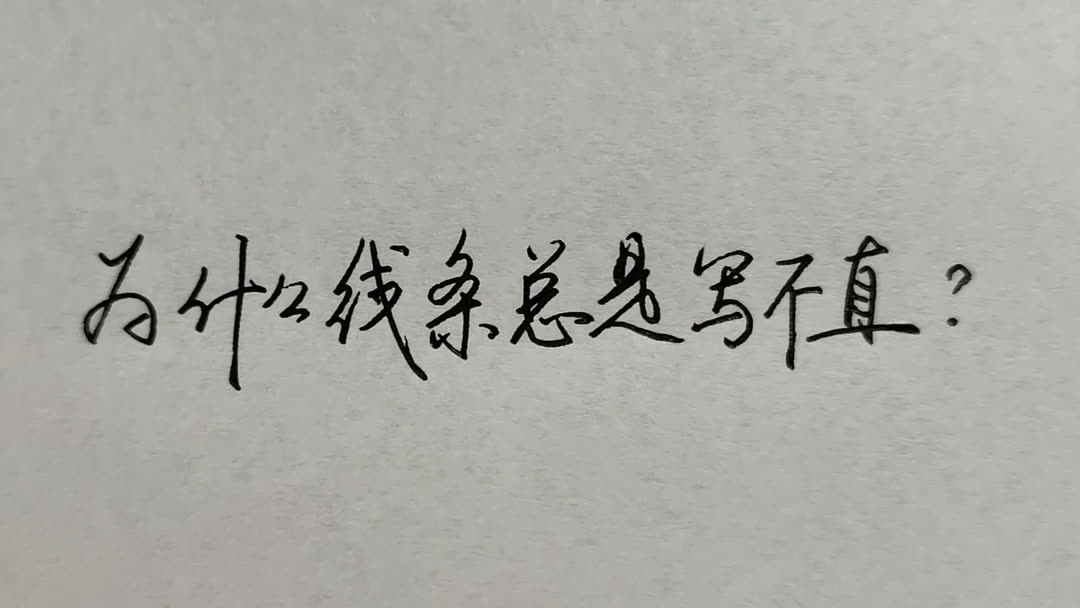 为什么线条总是写不直？